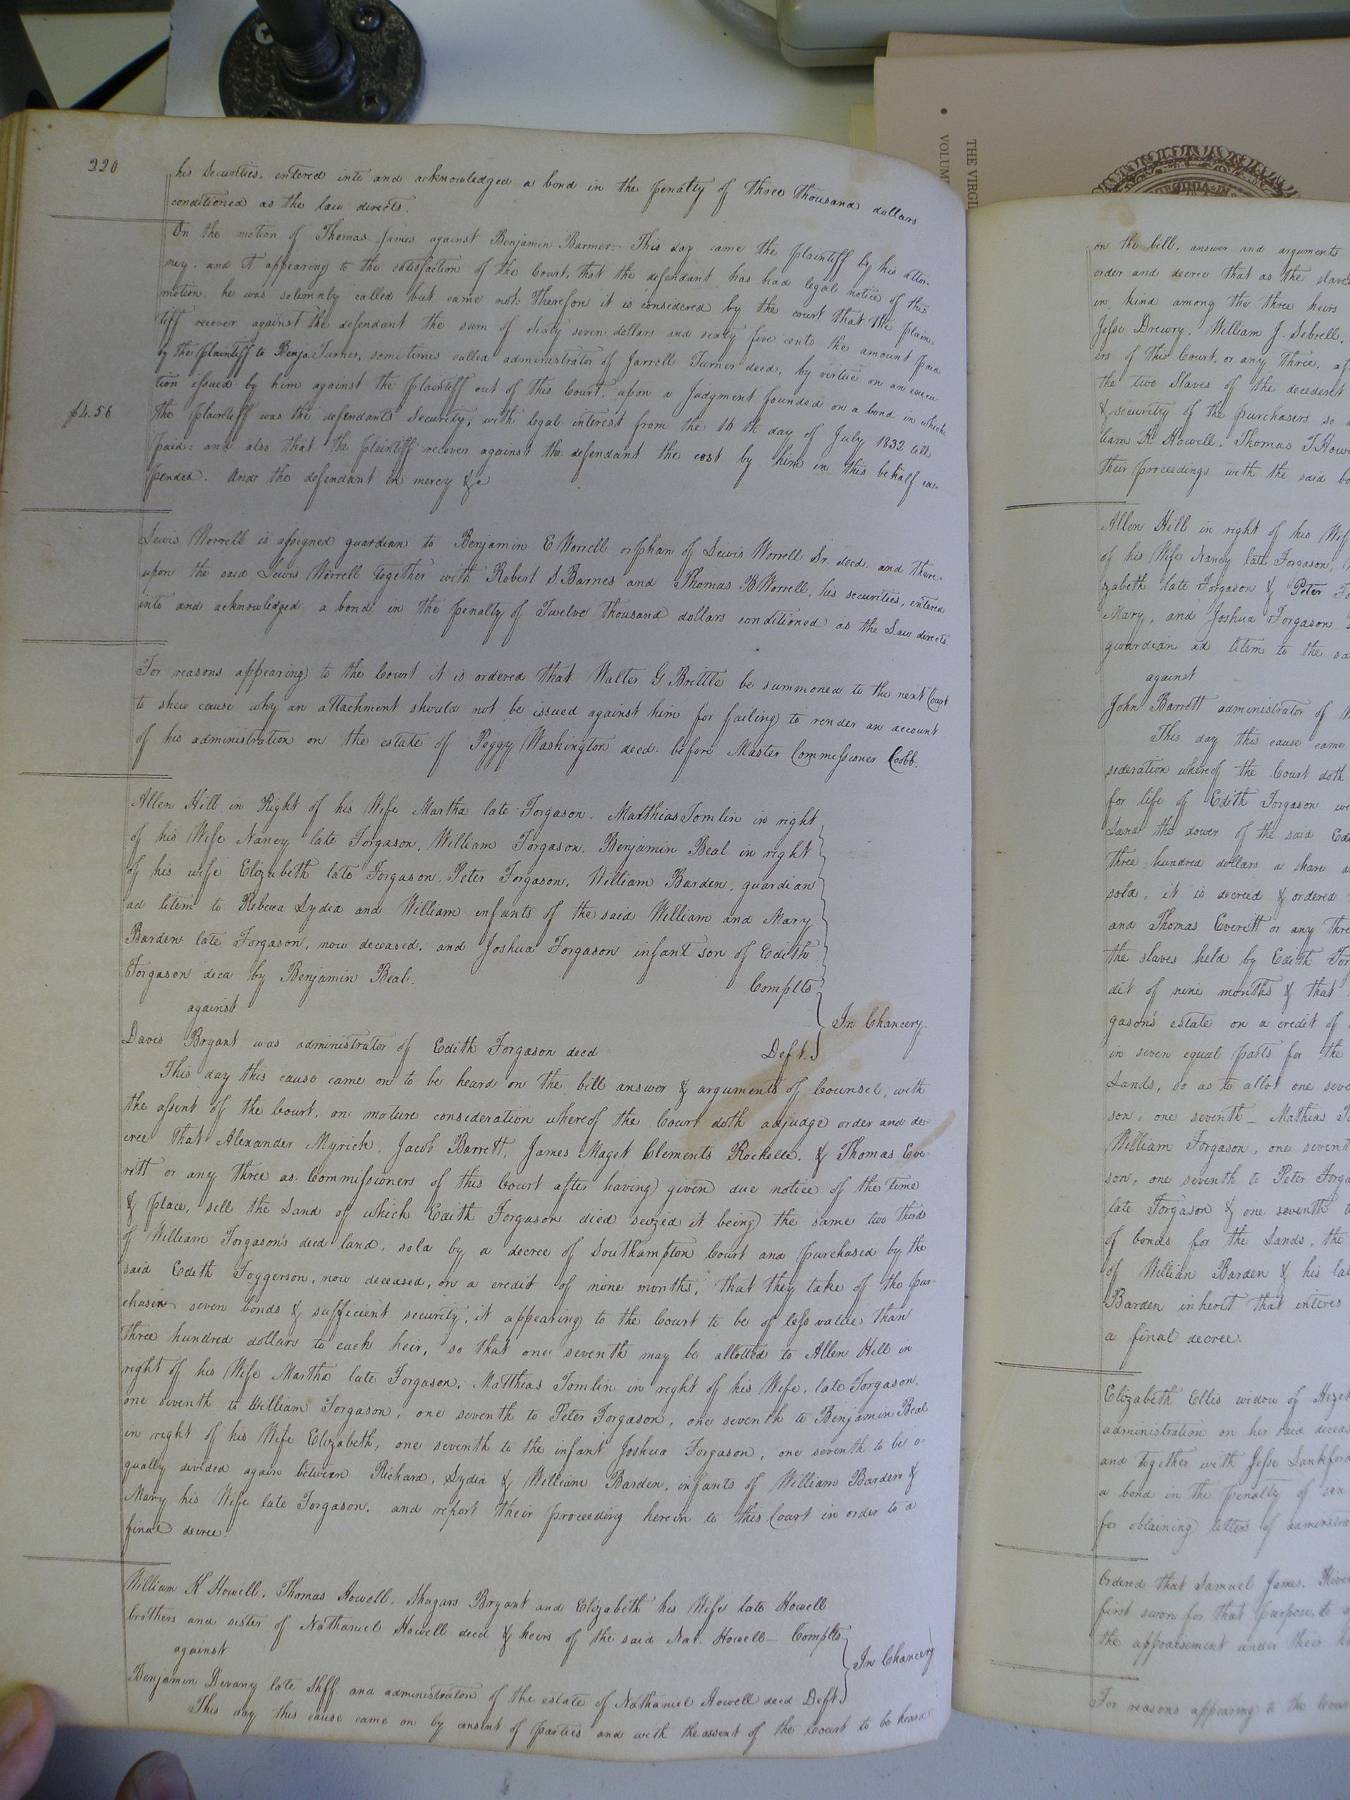 220
his Securities, entered into and acknowledged a bond in the penalty of three thousand dollars
conditioned as the law directs.
On the motion of Thomas James against Benjamin Barmer. This day came the plaintiff by his attor-
ney, and it appearing to the satisfaction of the Court, that the defendant has had legal notice of this
motion, he was solemnly called but came not: Therefore it is considered by the court that the plain-
tiff recover against the defendant the sum of sixty seven dollars and sixty five cents the amount paid
by the plaintiff to Benja Turner, sometimes called administrator of Jarrell Turner decd, by virtue on an execu-
tion issued by him against the plaintiff out of this Court, upon a Judgment founded on a bond in which
$4.56
the plaintiff was the defendants Security, with legal interest from the 16th day of July 1832 till
paid; and also that the plaintiff recover against the defendant the cost by him in this behalf ex-
pended. And the defendant in mercy &c
Lewis Worrell is assigned guardian to Benjamin E Worrell orphan of Lewis Worrell Sr. decd. and there-
upon the said Lewis Worrell together with Robert S. Barnes and Thomas B Worrell, his securities, entered
into and acknowledged a bond in the penalty of Twelve thousand dollars conditioned as the Law directs.
For reasons appearing to the Court it is ordered that Walter G Brittle be summoned to the next Court
to shew cause why an attachment should not be issued against him for failing to render an account
of his administration on the estate of Peggy Washington decd. before Master Commissioner Cobb.
Allen Hill in Right of his Wife Martha late Forgason. Matthias Tomlin in right
of his Wife Nancy late Forgason, William Forgason, Benjamin Beal in right
of his wife Elizabeth late Forgason, Peter Forgason, William Barden, guardian
ad litem to Rebecca Lydia and William infants of the said William and Mary
Barden late Forgason, now deceased, and Joshua Forgason infant son of Edith
Forgason decd by Benjamin Beal. Complts
against
In Chancery
Davis Bryant was administrator of Edith Forgason decd Deft.
This day this cause came on to be heard on the bill answer & arguments of Counsel, with
the assent of the Court, on mature consideration whereof the Court doth adjudge order and de-
cree that Alexander Myrick, Jacob Barrett, James Maget Clements Rochelle, & Thomas Eve-
rett or any three as Commissioners of this Court after having given due notice of the time
& place, sell the Land of which Edith Forgason died seized it being the same two thirds
of William Forgason's decd land, sold by a decree of Southampton Court and purchased by the
said Edith Foggerson, now deceased, on a credit of nine months, that they take of the pur-
chasers seven bonds & sufficient security, it appearing to the Court to be of less value than
three hundred dollars to each heir, so that one seventh may be allotted to Allen Hill in
right of his Wife Martha late Forgason, Matthias Tomlin in right of his Wife, late Forgason,
one seventh to William Forgason, one seventh to Peter Forgason, one seventh to Benjamin Beal
in right of his Wife Elizabeth, one seventh to the infant Joshua Forgason, one seventh to be e-
qually divided again between Richard, Lydia & William Barden, infants of William Barden &
Mary his Wife late Forgason, and report their proceeding herein to this Court in order to a
final decree.
William K Howell, Thomas Howell, Shugars Bryant and Elizabeth his Wife late Howell
brothers and sister of Nathaniel Howell decd & heirs of the said Nat. Howell Complts
against
In Chancery
Benjamin Devany late Shff and administrator of the estate of Nathaniel Howell decd Deft.
This day this cause came on by consent of parties and with the assent of the Court to be heard
THE VIRGI
VOLUM
on the bill, answer and arguments
order and decree that as the slaves
in kind among the three heirs
Jesse Drewry. William J. Sebrell,
ers of this Court, or any three, af
the two Slaves of the decedent
& security of the purchasers so
liam K. Howell. Thomas T. How
their proceedings with the said bo
Allen Hill in right of his Wif
of his Wife Nancy late Forgason,
zabeth late Forgason & Peter Fo
Mary, and Joshua Forgason
guardian ad litem to the sa
against
John Barrett administrator of W
This day this cause came
sideration whereof the Court doth
for life of Edith Forgason
Land the dower of the said Ed
three hundred dollars a share
sold, it is decreed & ordered
and Thomas Everett or any thre
the slaves held by Edith For
dit of nine months & that
gason's estate on a credit of
in seven equal parts for the
Lands, so as to allot one seve
son, one seventh Mathias T
William Forgason, one sevent
son, one seventh to Peter Forga
late Forgason & one seventh
of bonds for the Lands, the
of William Barden & his la
Barden inherit that interes
a final decree.
Elizabeth Ellis widow of Heze
administration on her said deceas
and together with Jesse Lankford
a bond in the penalty of
for obtaining letters of administra
Ordered that Samuel James,
first sworn for that purpose, to
the appraisement under their
For reasons appearing to the Cour